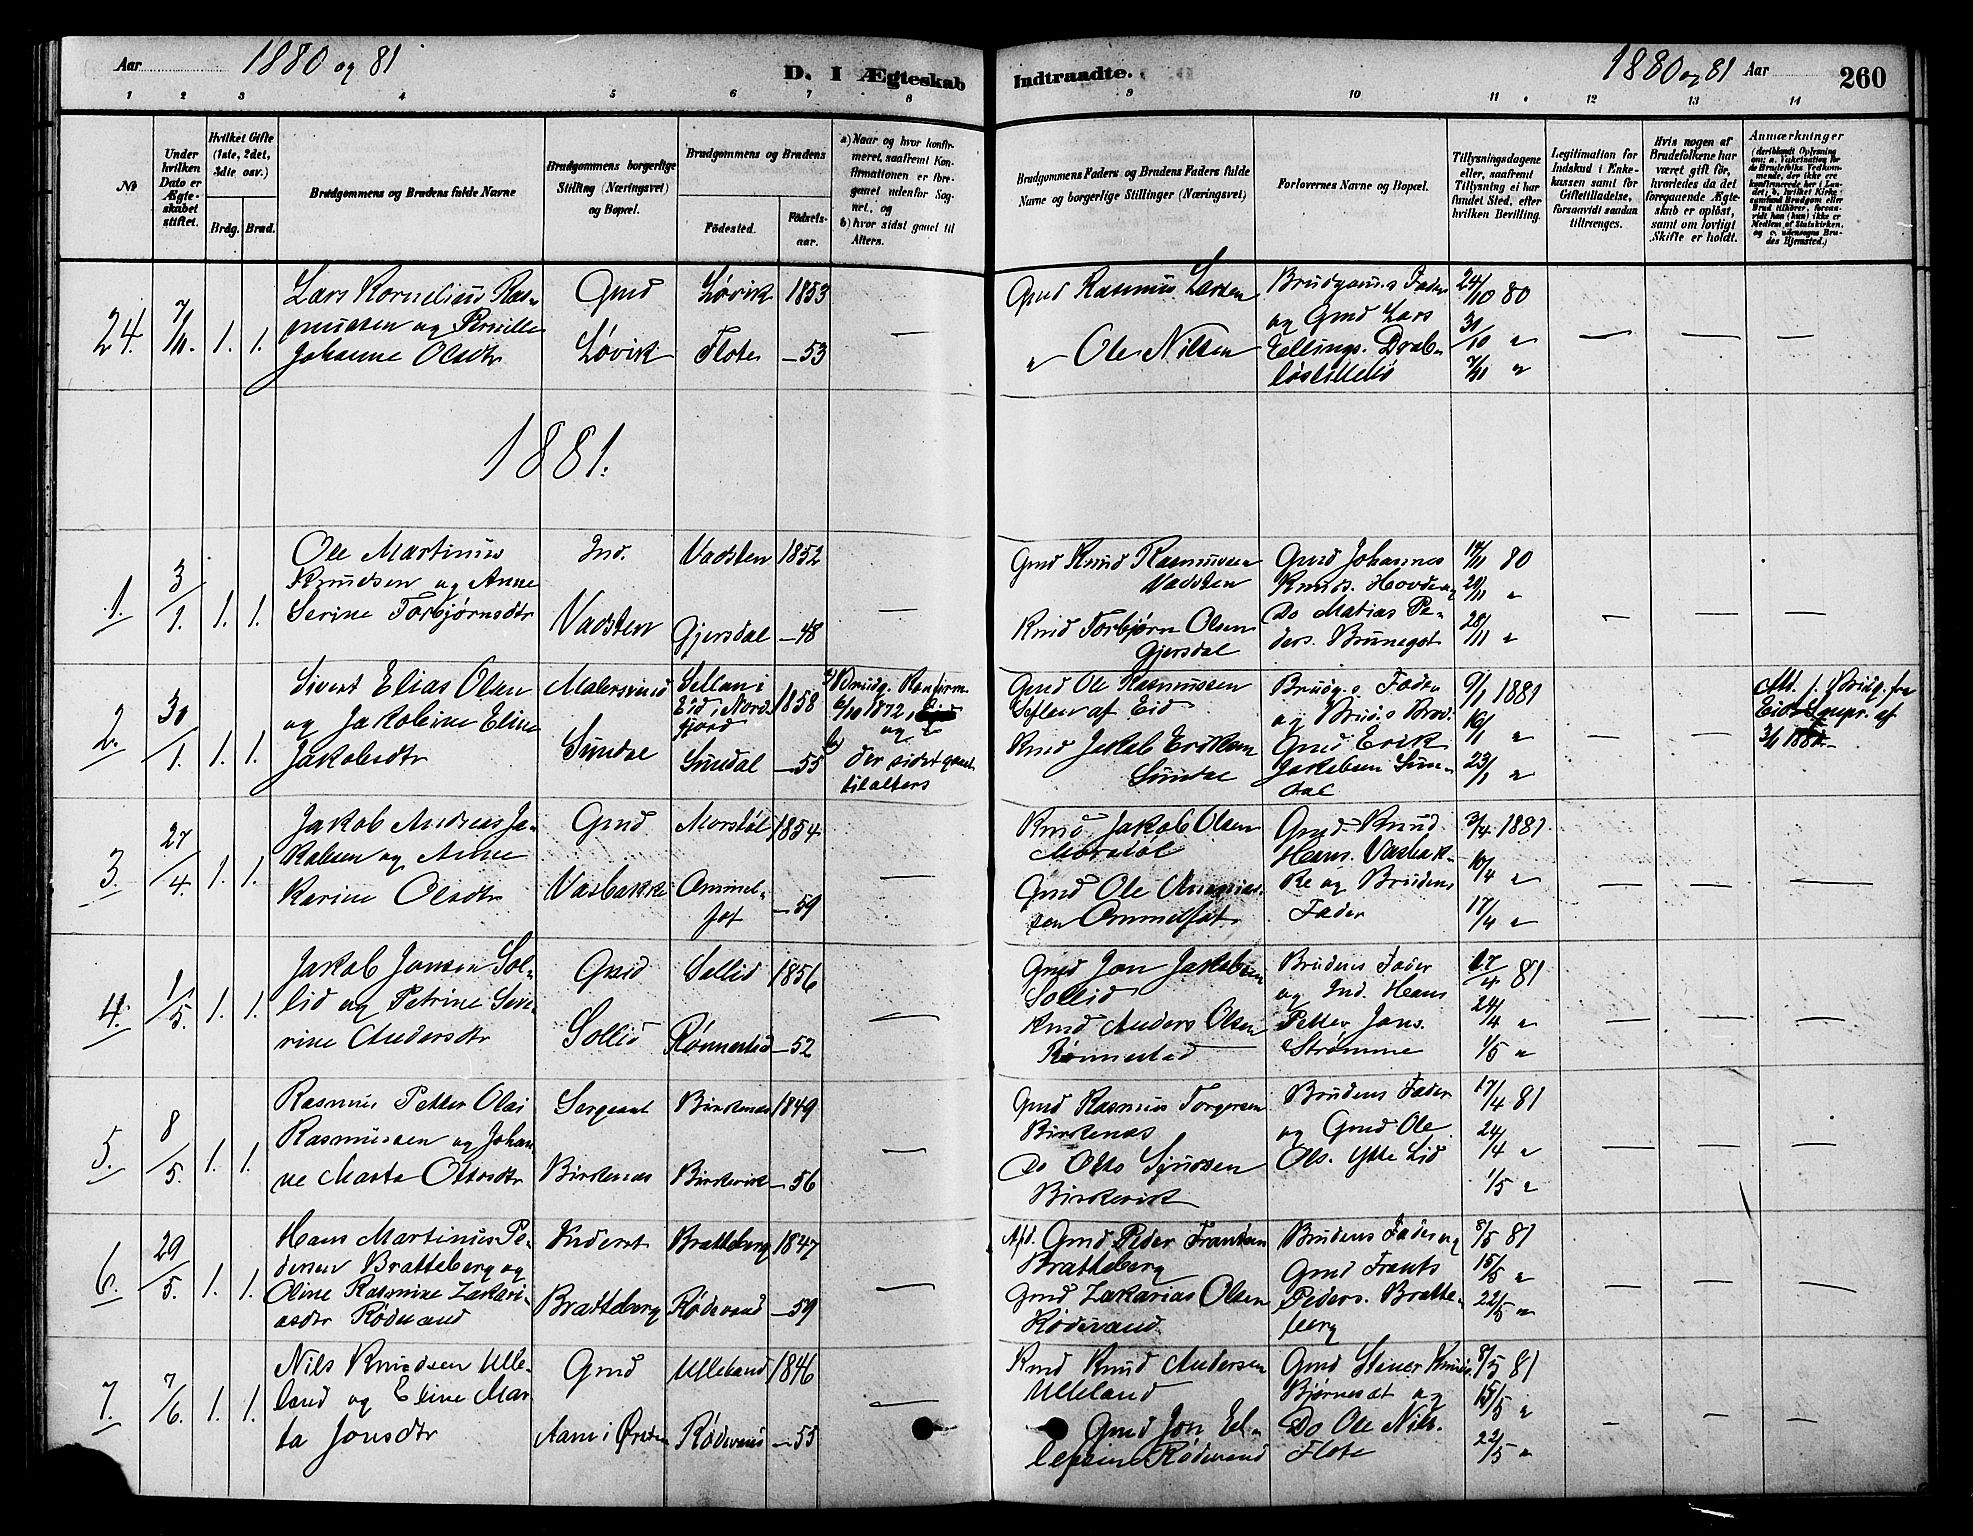 Aar 1880 og 81
D. I Ægteskab
Indtraadte.
1880 og 81 Aar
260
1 2 3 4 5 6 7 8
9 10 11 12 13 14
No
Under hvilken Dato er Ægteskabet stiftet.
Hvilket Gifte (1ste, 2det, 3die osv.)
Brdg. Brud.
Brudgommens og Brudens fulde Navne
Brudgommens borgerlige Stilling (Næringsvei) og Bopæl.
Brudgommens og Brudens
Fødested.
Fødselsaar.
a) Naar og hvor konfirmeret, saafremt Konfirmationen er foregaaet udenfor Sognet, og
b) hvor sidst gaaet til Alters.
Brudgommens Faders og Brudens Faders fulde Navne og borgerlige Stillinger (Næringsvei)
Forlovernes Navne og Bopæl.
Tillysningsdagene eller, saafremt Tillysning ei har fundet Sted, efter hvilken Bevilling.
Legitimation for Indskud i Enkekassen samt for Giftetilladelse, forsaavidt saadan tiltrænges.
Hvis nogen af Brudefolkene har været gift før, hvorledes da det foregaaende Ægteskab er opløst, samt om lovligt Skifte er holdt.
Anmærkninger
24. 7/11. 1. 1.
Lars Kornelius Ras-
mussen og Pernille
Johanne Olsdtr
Gmd
Løvik
Løvik 1853
Flote —53
—
Gmd Rasmus Larsen
" Ole Nilsen
Brudgoms Fader
og Gmd Lars
Ellings. Drab-
løslillelid
24/10 80
31/10 "
7/11 "
— — —
1881.
1. 3/1. 1. 1.
Ole Martinus
Knudsen og Anne
Serine Torbjørnsdtr
Ind.
Vadsten
Vadsten 1852
Gjersdal —48
—
Gmd Knud Rasmussen
Vadsten
Kmd Torbjørn Olsen
Gjersdal
Gmd Johannes
Knuds. Hovde og
Do Matias Pe-
ders. Brunegot
14/11 80
21/11 "
28/11 "
— — —
2. 30/1. 1. 1.
Sivert Elias Olsen
og Jakobine Eline
Jakobsdtr
Malersvend
Sundal
i
Eid i Nord-
fjord
Sundal
1858
—55
a) Brudg. Konfirm.
6/10 1872,
og
b) der sidst gaaet
til alters
Gmd Ole Rasmussen
af Eid
Kmd Jakob Eriksen
Sundal
Brudg.s Fader
og Brud.s Brod.
Gmd Erik
Jakobsen Sun-
dal
9/1 1881
16/1 "
23/1 "
— —
Att. f. Brudg. fra
3/1 1881
3. 27/4. 1. 1.
Jakob Andreas Ja-
kobsen og Anne
Karine Olsdtr
Gmd
Vasbakke
Morstøl 1854
Ommel-
fot —59
—
Kmd Jakob Olsen
Morstøl
Gmd Ole Ananias-
sen Ommelfot
Gmd Knud
Hans. Vasbak-
ke og Brudens
Fader
3/4 1881
10/4 "
17/4 "
— — —
4. 1/5. 1. 1.
Jakob Jonsen Sol-
lid og Petrine Seve-
rine Andersdtr
Gmd
Sollid
Sollid 1856
Rønnestad —52
—
Gmd Jon Jakobsen
Sollid
Kmd Anders Olsen
Rønnestad
Brudens Fader
og Ind. Hans
Petter Jons.
Strømme
17/4 81
24/4 "
1/5 "
— — —
5. 8/5. 1. 1.
Rasmus Petter Olai
Rasmussen og Johan-
ne Marta Ottosdtr
Sergeant
Birkenæs
Birkenæs 1849
Birkevik —56
—
Gmd Rasmus Torgersen
Birkenæs
Do Otto Sjursen
Birkevik
Brudens Fader
og Gmd Ole
Ols. Ytte Lid
17/4 81
24/4 "
1/5 "
— — —
6. 29/5. 1. 1.
Hans Martinus Pe-
dersen Bratteberg og
Oline Rasmine Zakari-
asdtr Rødsand
Inderst
Bratteberg
Bratteberg 1847
Rødsand —59
—
Afd. Gmd Peder Frantsen
Bratteberg
Gmd Zakarias Olsen
Rødsand
Brudens Fader og
Gmd Frants
Peders. Bratte-
berg
8/5 81
15/5 "
22/5 "
— — —
7. 7/6. 1. 1.
Nils Knudsen Ulle-
land og Eline Mar-
ta Jonsdtr
Gmd
Aam i Ørsten
Ulleland 1846
—55
—
Kmd Knud Andersen
Ulleland
Gmd Jon El-
lefsen
Gmd Stener Knuds.
Bjørneset og
Do Ole Nils.
Flote
8/5 81
15/5 "
22/5 "
— — —